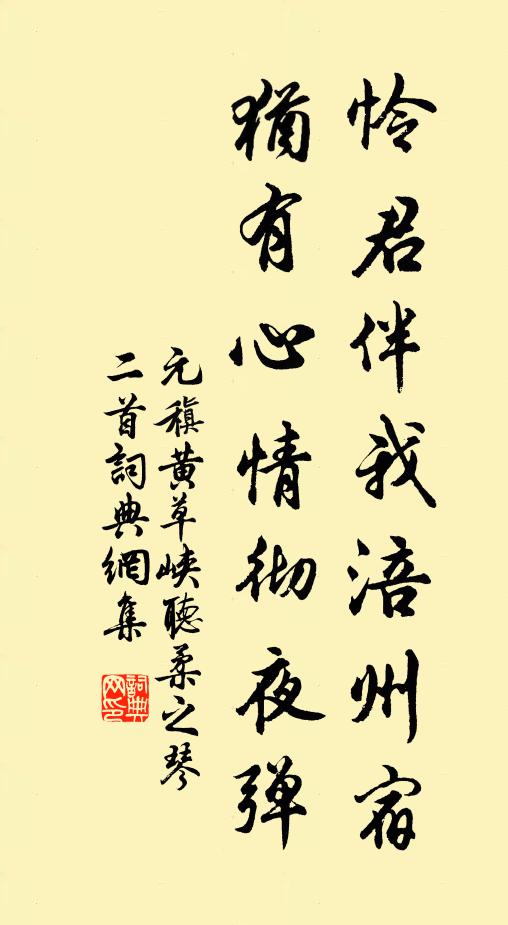 怜君伴我涪州宿
猶有心情彻夜弹
元稹黄草峡聽柔之琴
二首詞典網集
詞典网印